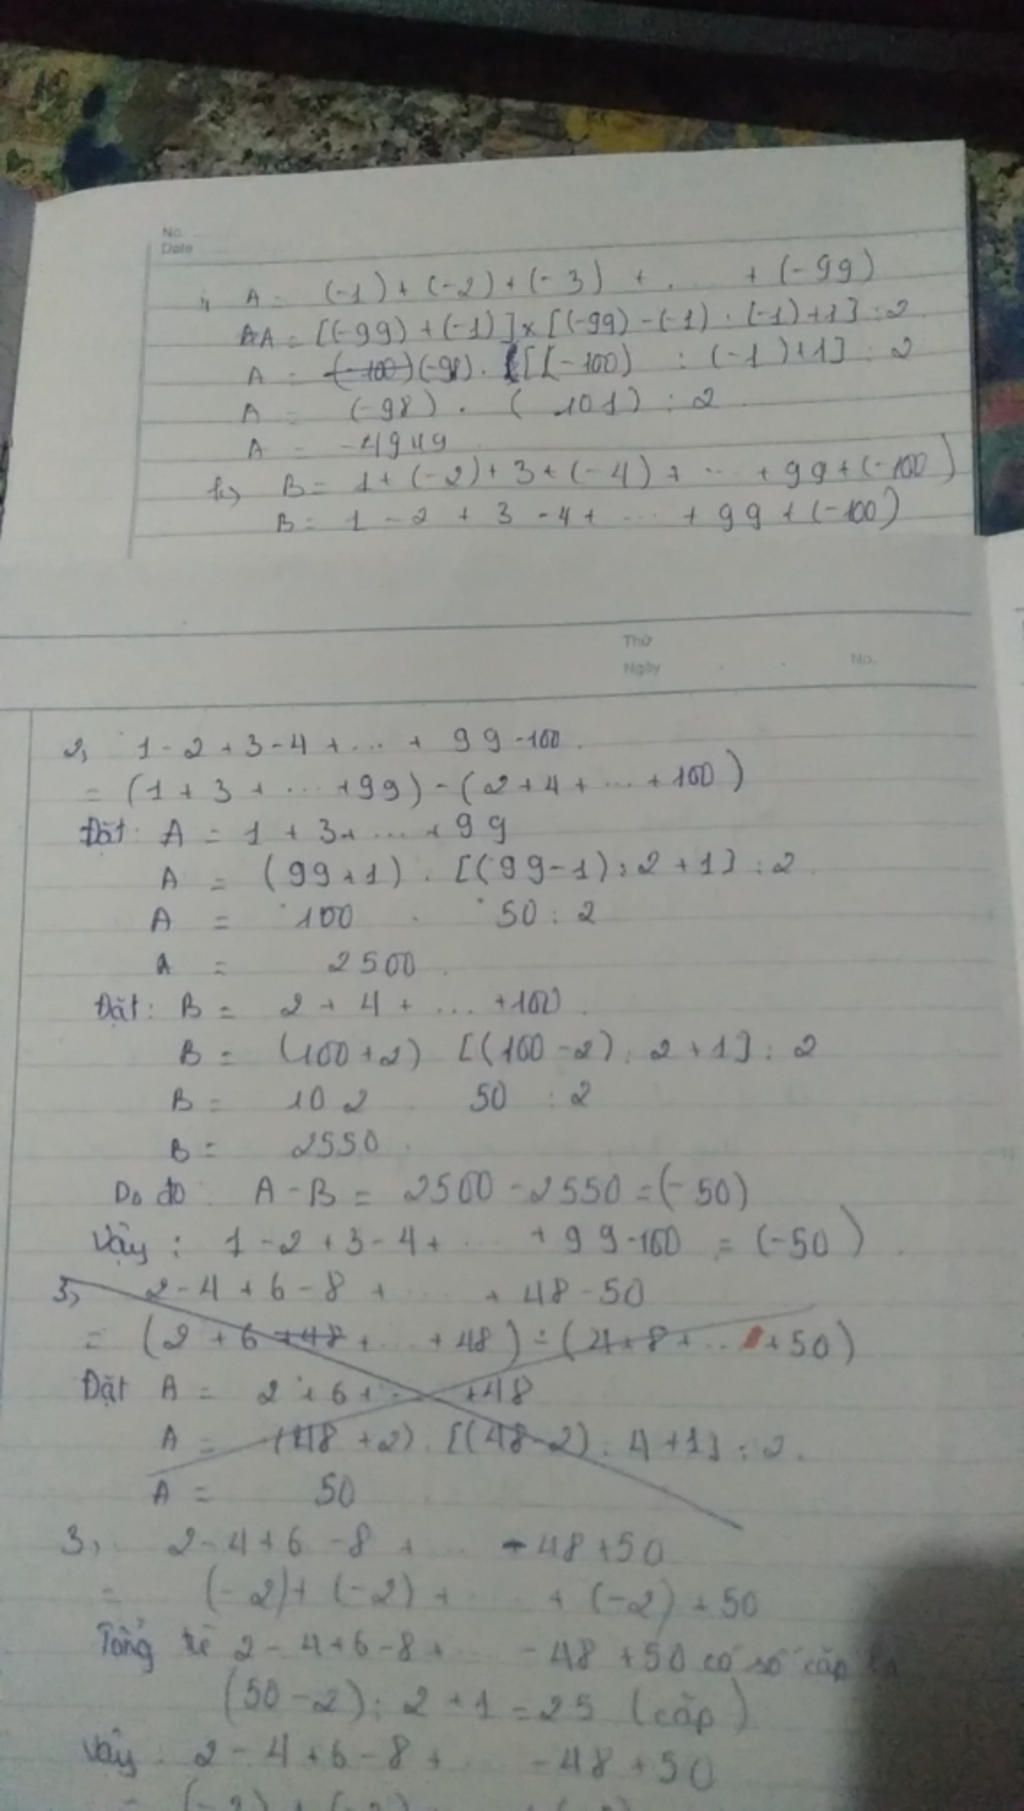 No.
Date
1, A = (-1) + (-2) + (-3) + . . . + (-99)
A = [(-99) + (-1)] x [(-99) - (-1) : (-1) + 1] : 2
A = (-98) . [(-100) : (-1) + 1] : 2
A = (-98) . ( 101) : 2
A = -4949
b) B = 1 + (-2) + 3 + (-4) + ... + 99 + (-100)
B = 1 - 2 + 3 - 4 + ... + 99 + (-100)
Thứ
Ngày No.
2, 1 - 2 + 3 - 4 + ... + 99 - 100.
= (1 + 3 + ... + 99) - (2 + 4 + ... + 100)
Đặt: A = 1 + 3 + ... + 99
A = (99 + 1) . [(99 - 1) : 2 + 1] : 2
A = 100 . 50 : 2
A = 2500
Đặt: B = 2 + 4 + ... + 100.
B = (100 + 2) [(100 - 2) : 2 + 1] : 2
B = 102 . 50 : 2
B = 2550.
Do đó: A - B = 2500 - 2550 = (-50)
Vậy: 1 - 2 + 3 - 4 + ... + 99 - 100 = (-50)
3, 2 - 4 + 6 - 8 + ... + 48 - 50
= (2 + 6 + 48 + ... + 48) - (4 + 8 + ... + 50)
Đặt A = 2 + 6 + ... + 48
A = (48 + 2) . [(48 - 2) : 4 + 1] : 2.
A = 50
3, 2 - 4 + 6 - 8 + ... - 48 + 50
= (-2) + (-2) + ... + (-2) + 50
Tổng 2 - 4 + 6 - 8 + ... - 48 + 50 có số cặp là
(50 - 2) : 2 + 1 = 25 (cặp)
Vậy 2 - 4 + 6 - 8 + ... - 48 + 50